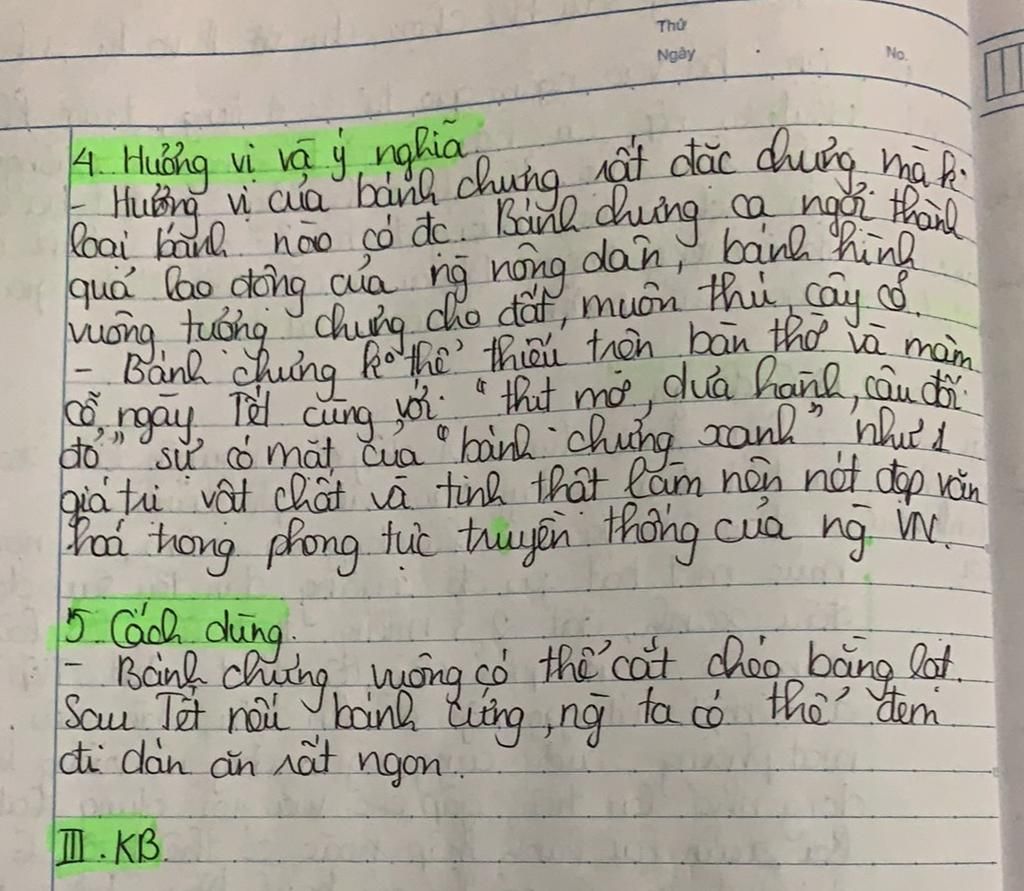 Thứ
Ngày . . No.
4. Hương vị và ý nghĩa
- Hương vị của bánh chưng rất đặc chưng mà k.
loại bánh nào có đc. Bánh chưng ca ngợi thành
quả lao động của ng nông dân, bánh hình
vuông tượng chưng cho đất, muôn thú, cây cỏ.
- Bánh chưng ko thể thiếu trên bàn thờ và mâm
cỗ, ngày Tết cùng với "thịt mỡ, dưa hành, câu đối
đỏ" sự có mặt của "bánh chưng xanh" như 1
giá trị vật chất và tinh thật làm nên nét đẹp văn
hoá trong phong tục truyền thống của ng VN.
5. Cách dùng.
- Bánh chưng vuông có thể cắt chéo bằng lạt.
Sau Tết nếu bánh cứng, ng ta có thể đem
đi dán ăn rất ngon.
III. KB.